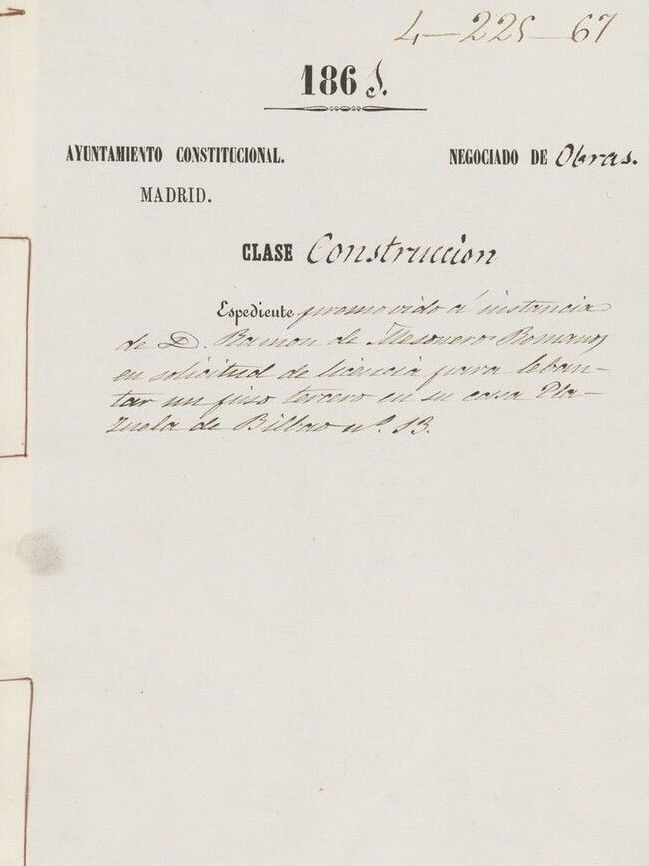 4-225-67
186
AYUNTAMIENTO CONSTITUCIONAL.
NEGOCIADO DE Obras.
MADRID.
CLASE Construccion
Espediente promovido á instancia
de D. Ramon de Mesonero Romanos
en solicitud de licencia para leban-
tar un piso tercero en su casa Pla-
zuela de Bilbao nº. 13.